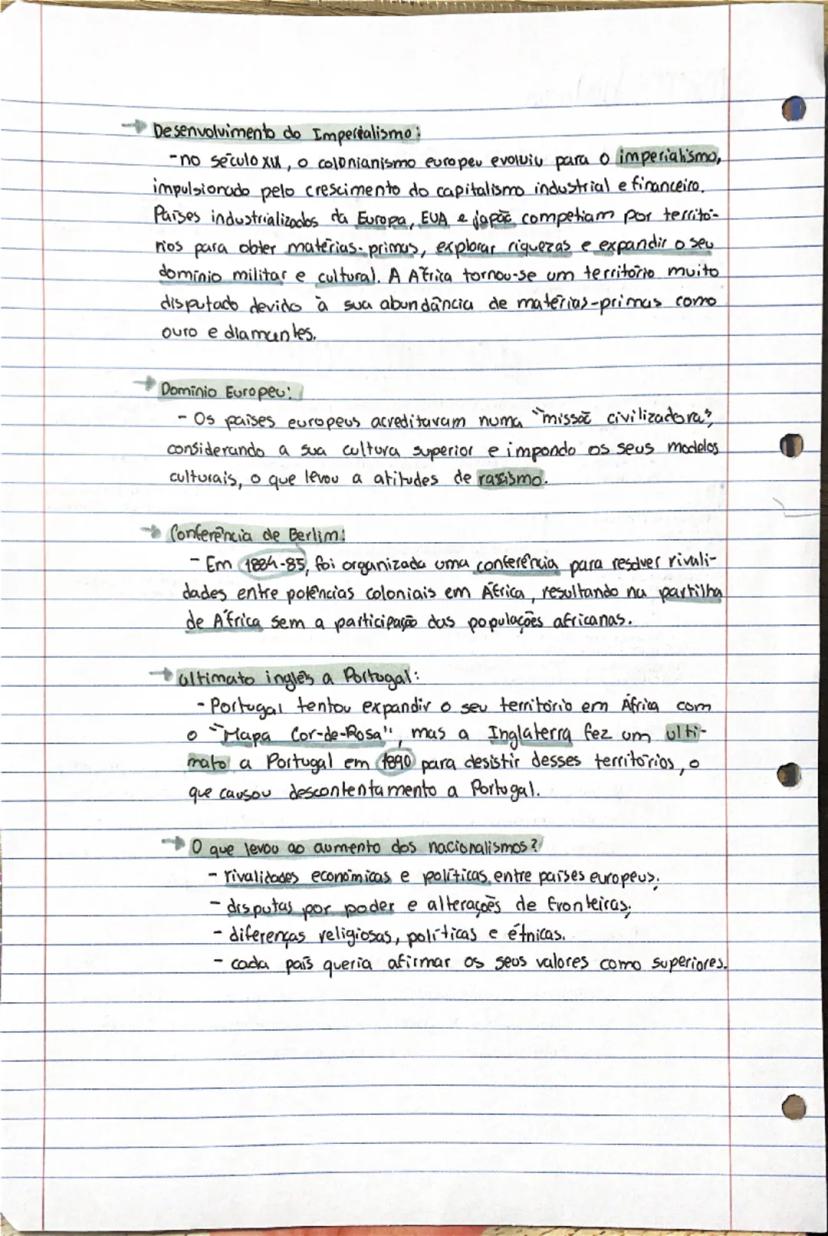 → Desenvolvimento do Imperialismo:
- no século XIX, o colonianismo europeu evoluiu para o imperialismo,
impulsionado pelo crescimento do capitalismo industrial e financeiro.
Países industrializados da Europa, EUA e japão competiam por territó-
rios para obter matérias-primas, explorar riquezas e expandir o seu
domínio militar e cultural. A África tornou-se um território muito
disputado devido à sua abundância de matérias-primas como
ouro e diamantes.
→ Domínio Europeu:
- Os países europeus acreditavam numa "missão civilizadora",
considerando a sua cultura superior e impondo os seus modelos
culturais, o que levou a atitudes de rassismo.
→ Conferência de Berlim:
- Em 1884-85, foi organizada uma conferência para resolver rivali-
dades entre potências coloniais em África, resultando na partilha
de África sem a participação das populações africanas.
→ Ultimato inglês a Portugal:
- Portugal tentou expandir o seu território em África com
o "Mapa Cor-de-Rosa", mas a Inglaterra fez um ulti-
mato a Portugal em 1890 para desistir desses territórios, o
que causou descontentamento a Portugal.
→ O que levou ao aumento dos nacionalismos?
- rivalidades económicas e políticas entre países europeus;
- disputas por poder e alterações de fronteiras;
- diferenças religiosas, políticas e étnicas.
- cada país queria afirmar os seus valores como superiores.